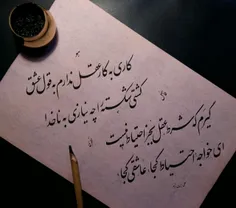 کاری به کار عقل ندارم به قول عشق
کشتی شکسته را چه نیازی به ناخدا
گیرم که شرط عقل بجز احتیاط نیست
ای خواجه احتیاط کجا؟ عاشقی کجا؟